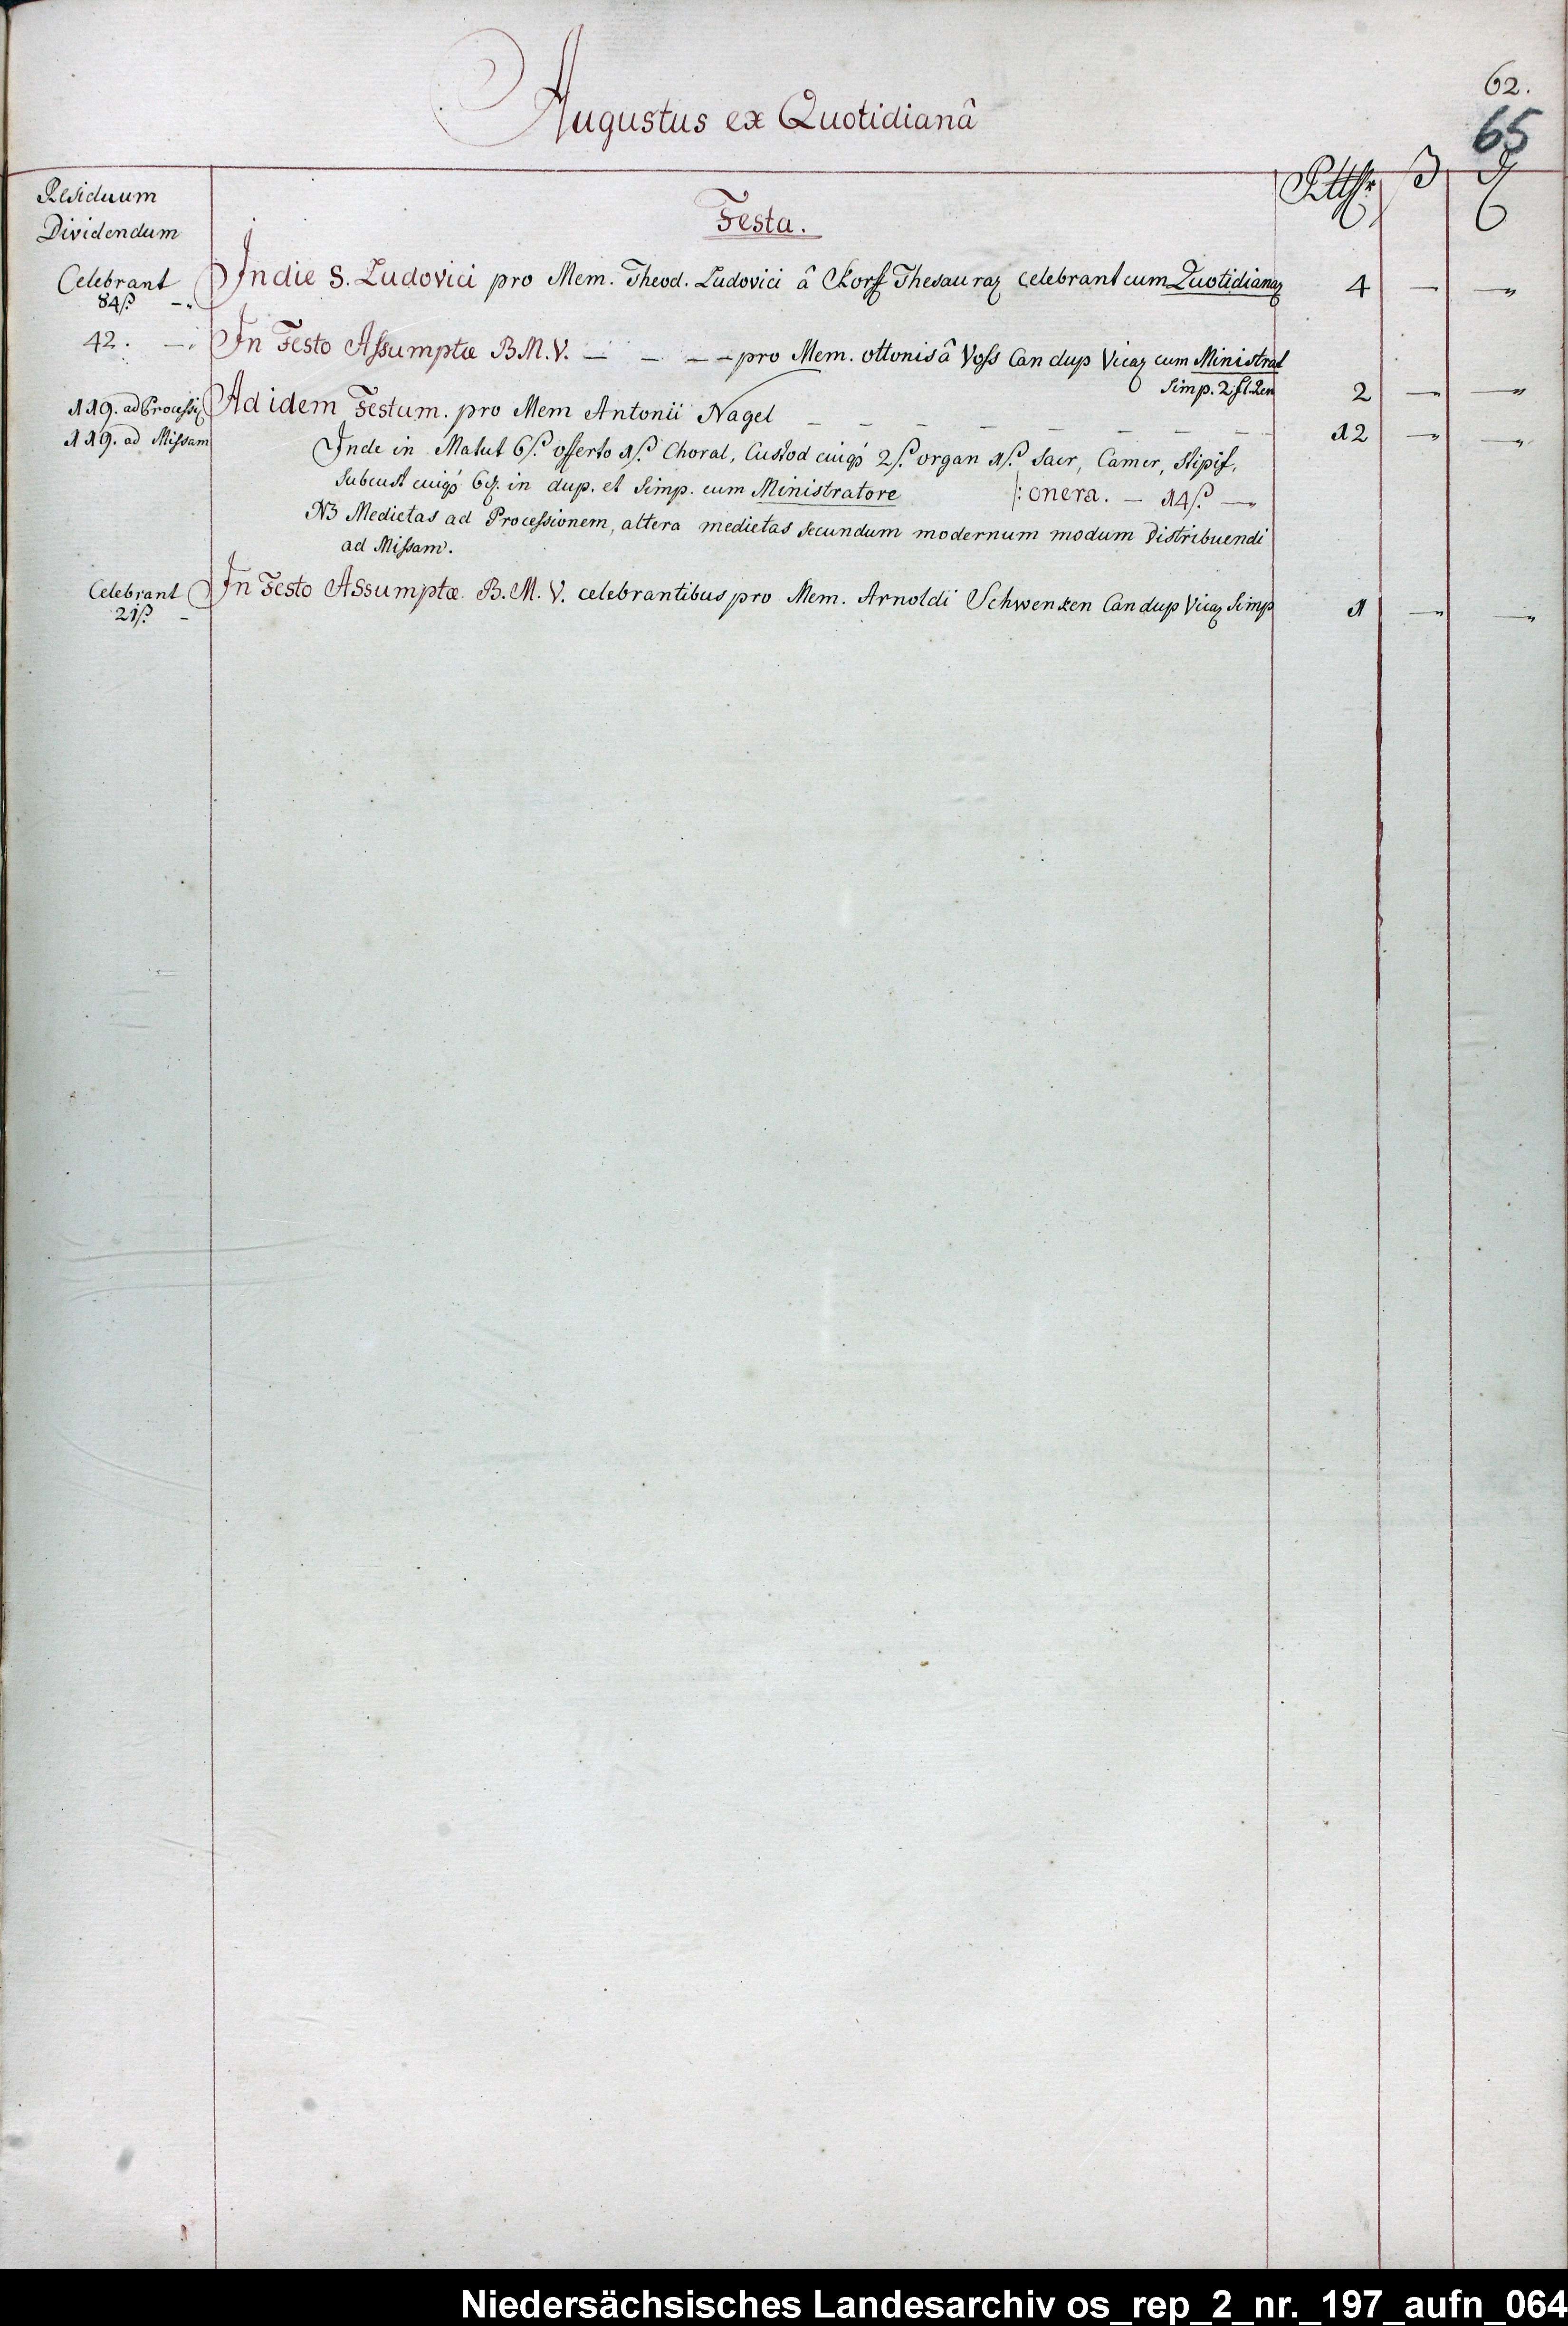 62.
65
Augustus ex Quotidianâ
Residuum
Dividendum
Rtthlr ß ₰
Festa.
Celebrant
84ß
In die S. Ludovici pro Mem. Theod. Ludovici â Korff Thesaurar celebrant cum Quotidianar 4 — —
42. —
In Festo Assumptæ B.M.V. — — — pro Mem. ottonis â Voss Can dup Vicar cum Ministrat
Simp. 2 2 — —
119. ad Processi
Ad idem Festum. pro Mem Antonii Nagel — — — — — — — — 12 — —
119. ad Missam
Inde in Matut 6ß. offerto 1ß. Choral, Custod cuiq 2ß. organ 1ß. Sacr, Camer, Stipif,
Subcust cuiq 6₰. in dup. et Simp. cum Ministratore /: onera. — 14ß. —
NB Medietas ad Processionem, altera medietas secundum modernum modum Distribuendi
ad Missam.
Celebrant
21ß. —
In Festo Assumptæ B.M.V. celebrantibus pro Mem. Arnoldi Schwenken Can dup Vicar Simp 1 — —
Niedersächsisches Landesarchiv os_rep_2_nr._197_aufn_064